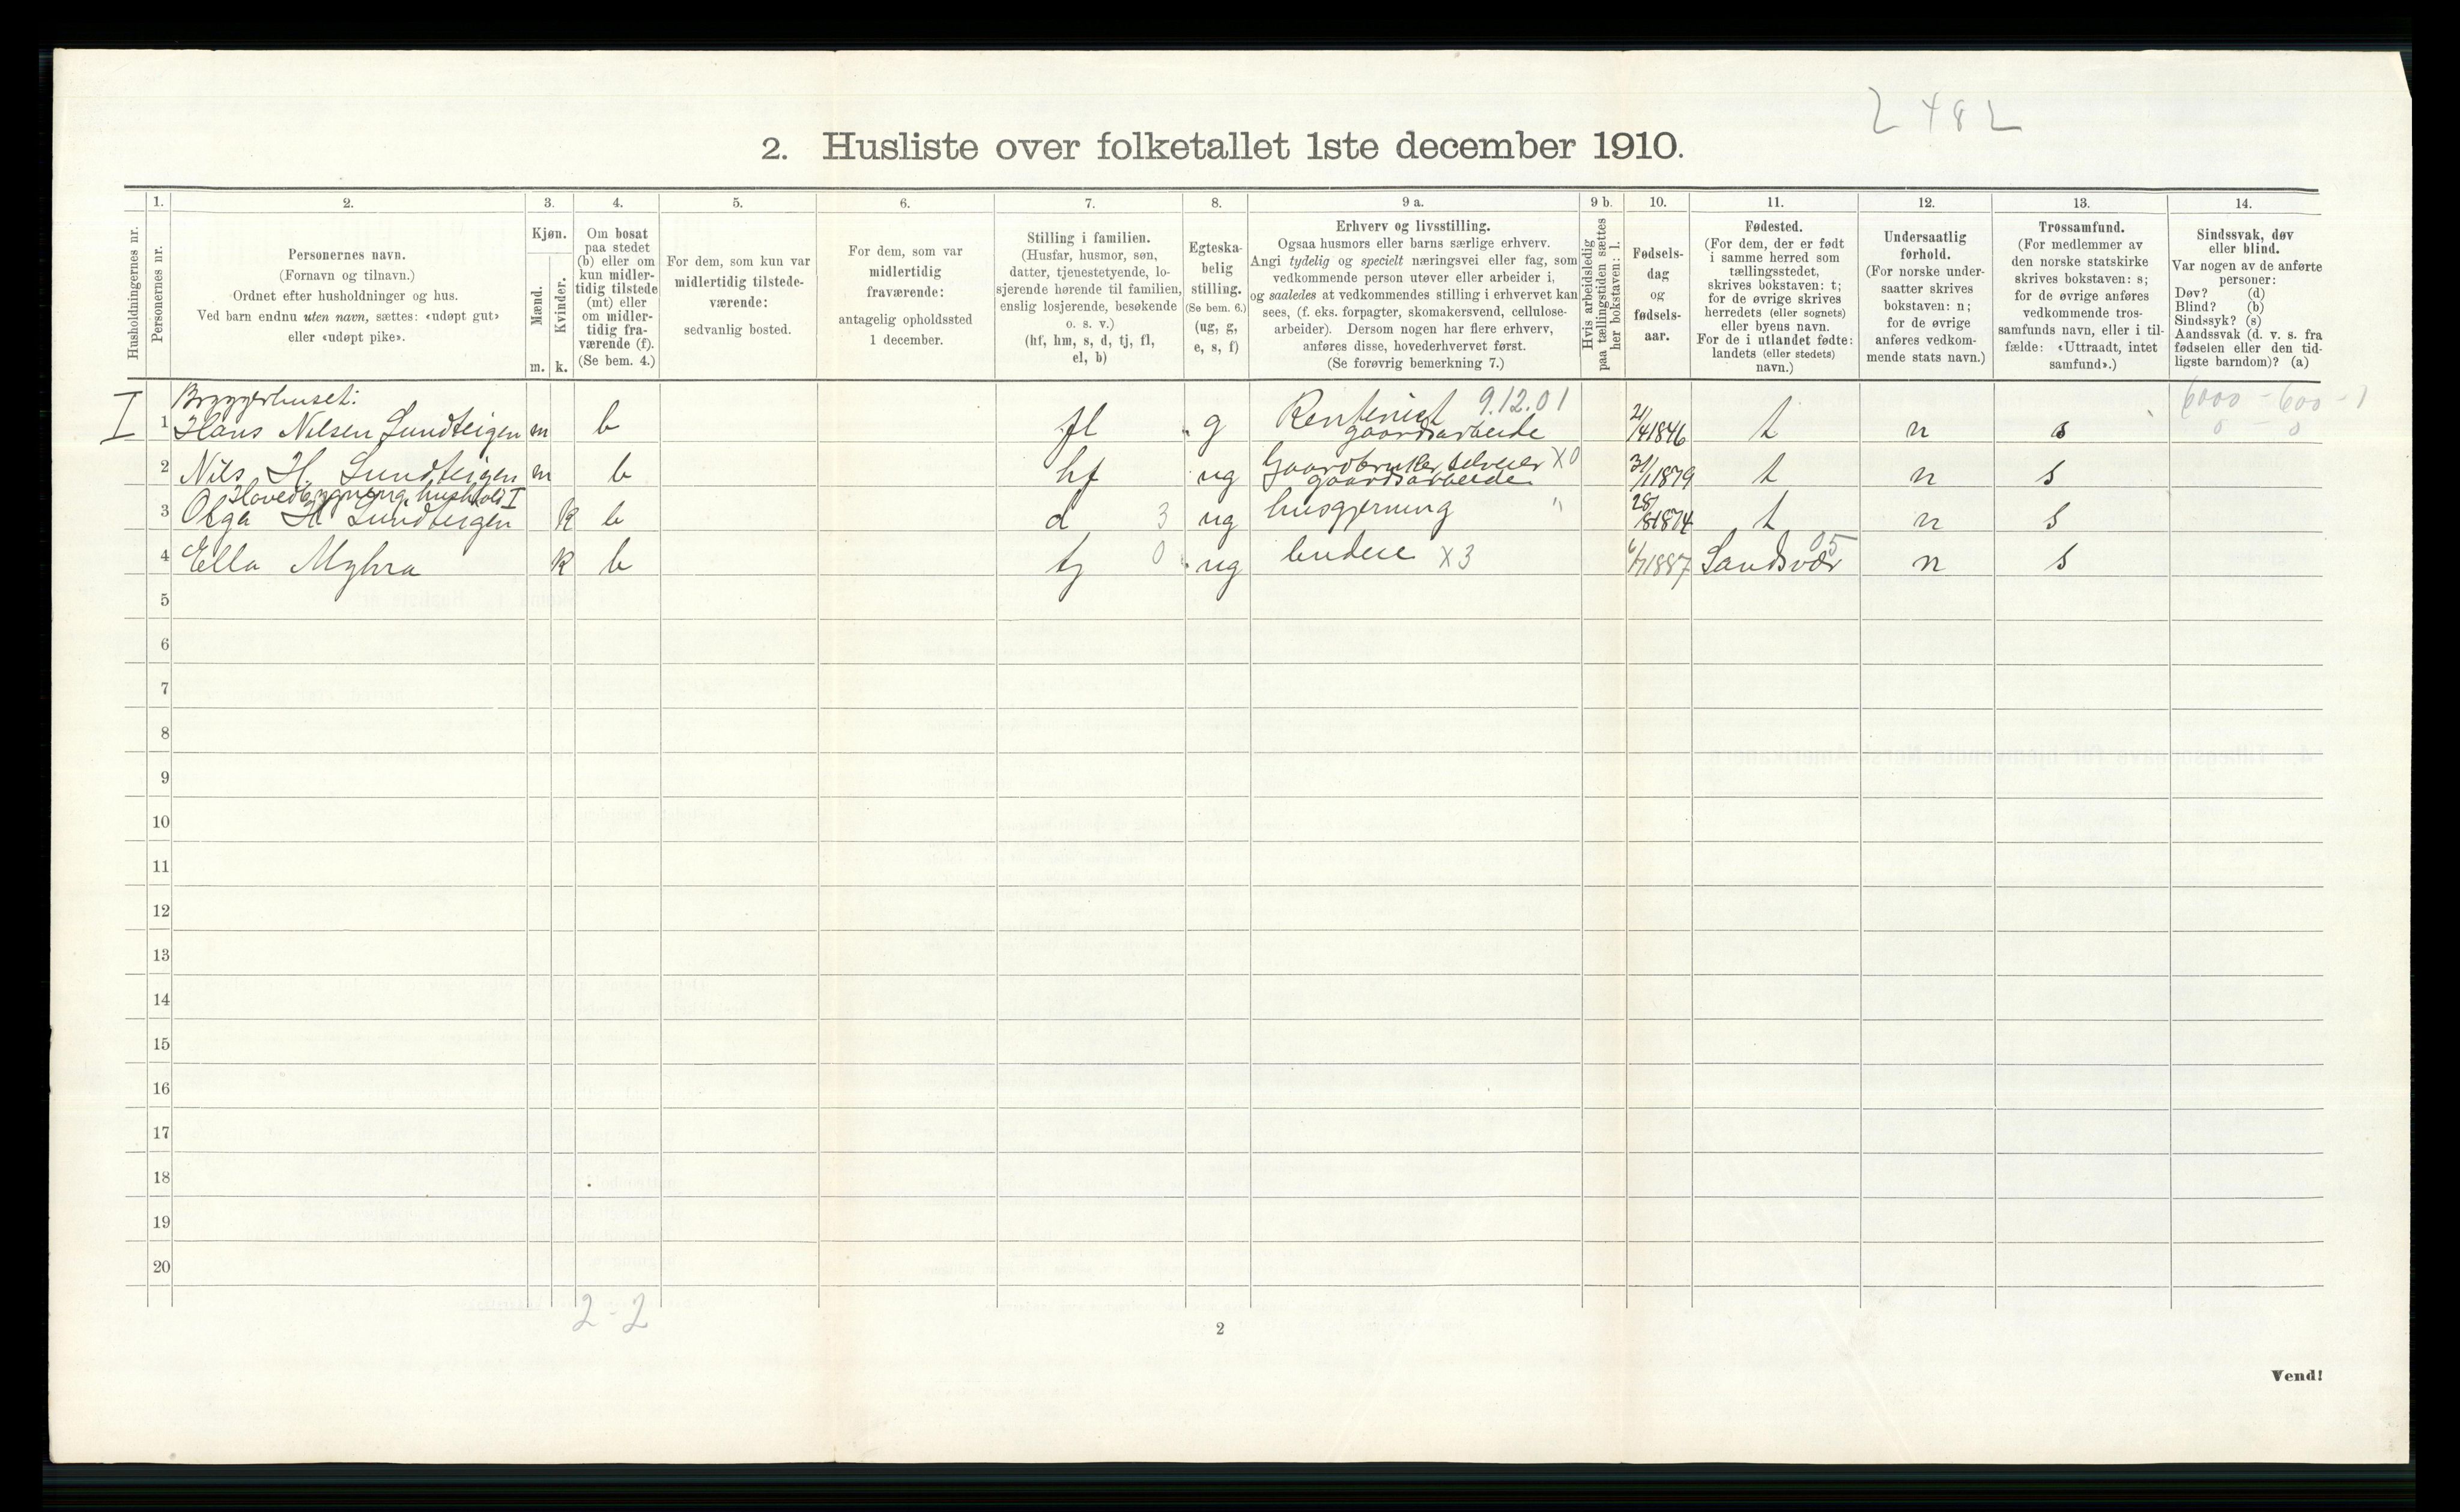 2 4 8 2
2. Husliste over folketallet 1ste december 1910.
Husholdningernes nr.
1.
Personernes nr.
2.
Personernes navn.
(Fornavn og tilnavn.)
Ordnet efter husholdninger og hus.
Ved barn endnu uten navn, sættes: «udøpt gut»
eller «udøpt pike».
3.
Kjøn.
Mænd.
Kvinder.
m. k.
4.
Om bosat
paa stedet
(b) eller om
kun midler-
tidig tilstede
(mt) eller
om midler-
tidig fra-
værende (f).
(Se bem. 4.)
5.
For dem, som kun var
midlertidig tilstede-
værende:
sedvanlig bosted.
6.
For dem, som var
midlertidig
fraværende:
antagelig opholdssted
1 december.
7.
Stilling i familien.
(Husfar, husmor, søn,
datter, tjenestetyende, lo-
sjerende hørende til familien,
enslig losjerende, besøkende
o. s. v.)
(hf, hm, s, d, tj, fl,
el, b)
8.
Egteska-
belig
stilling.
(Se bem. 6.)
(ug, g,
e, s, f)
9 a.
Erhverv og livsstilling.
Ogsaa husmors eller barns særlige erhverv.
Angi tydelig og specielt næringsvei eller fag, som
vedkommende person utøver eller arbeider i,
og saaledes at vedkommendes stilling i erhvervet kan
sees, (f. eks. forpagter, skomakersvend, cellulose-
arbeider). Dersom nogen har flere erhverv,
anføres disse, hovederhvervet først.
(Se forøvrig bemerkning 7.)
9 b.
Hvis arbeidsledig
paa tællingstiden sættes
her bokstaven: l.
10.
Fødsels-
dag
og
fødsels-
aar.
11.
Fødested.
(For dem, der er født
i samme herred som
tællingsstedet,
skrives bokstaven: t;
for de øvrige skrives
herredets (eller sognets)
eller byens navn.
For de i utlandet fødte:
landets (eller stedets)
navn.)
12.
Undersaatlig
forhold.
(For norske under-
saatter skrives
bokstaven: n;
for de øvrige
anføres vedkom-
mende stats navn.)
13.
Trossamfund.
(For medlemmer av
den norske statskirke
skrives bokstaven: s;
for de øvrige anføres
vedkommende tros-
samfunds navn, eller i til-
fælde: «Uttraadt, intet
samfund».)
14.
Sindssvak, døv
eller blind.
Var nogen av de anførte
personer:
Døv? (d)
Blind? (b)
Sindssyk? (s)
Aandssvak (d. v. s. fra
fødselen eller den tid-
ligste barndom)? (a)
Bryggerhuset:
I 1 Hans Nilsen Lundteigen m b fl g Rentenist 9.12.01 gaardsarbeide 21/4 1846 t n s 6000 - 600 - 1
0 - 0
2 Nils H. Lundteigen m b hf ug Gaardbruker selveier X0 gaardsarbeide 31/1 1879 t n s
Hovedbygning, hushold I
3 Olga H Lundteigen k b d 3 ug husgjerning " 28/8 1874 t n s
4 Ella Myhra k b tj 0 ug budeie X3 6/7 1887 Sandsvær 05 n s
5
6
7
8
9
10
11
12
13
14
15
16
17
18
19
20
2 - 2
2
Vend!